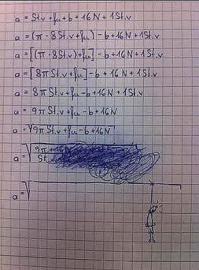 a = St.v + fu - b + 16N + 1St.v
a = (π · 8St.v + fu) - b + 16N + 1St.v
a = [(π · 8St.v) + fu] - b + 16N + 1St.v
a = [8πSt.v + fu] - b + 16N + 1St.v
a = 8πSt.v + fu - b + 16N + 1St.v
a = 9πSt.v + fu - b + 16N
a = √9πSt.v + fu - b + 16N
a = √
a = √